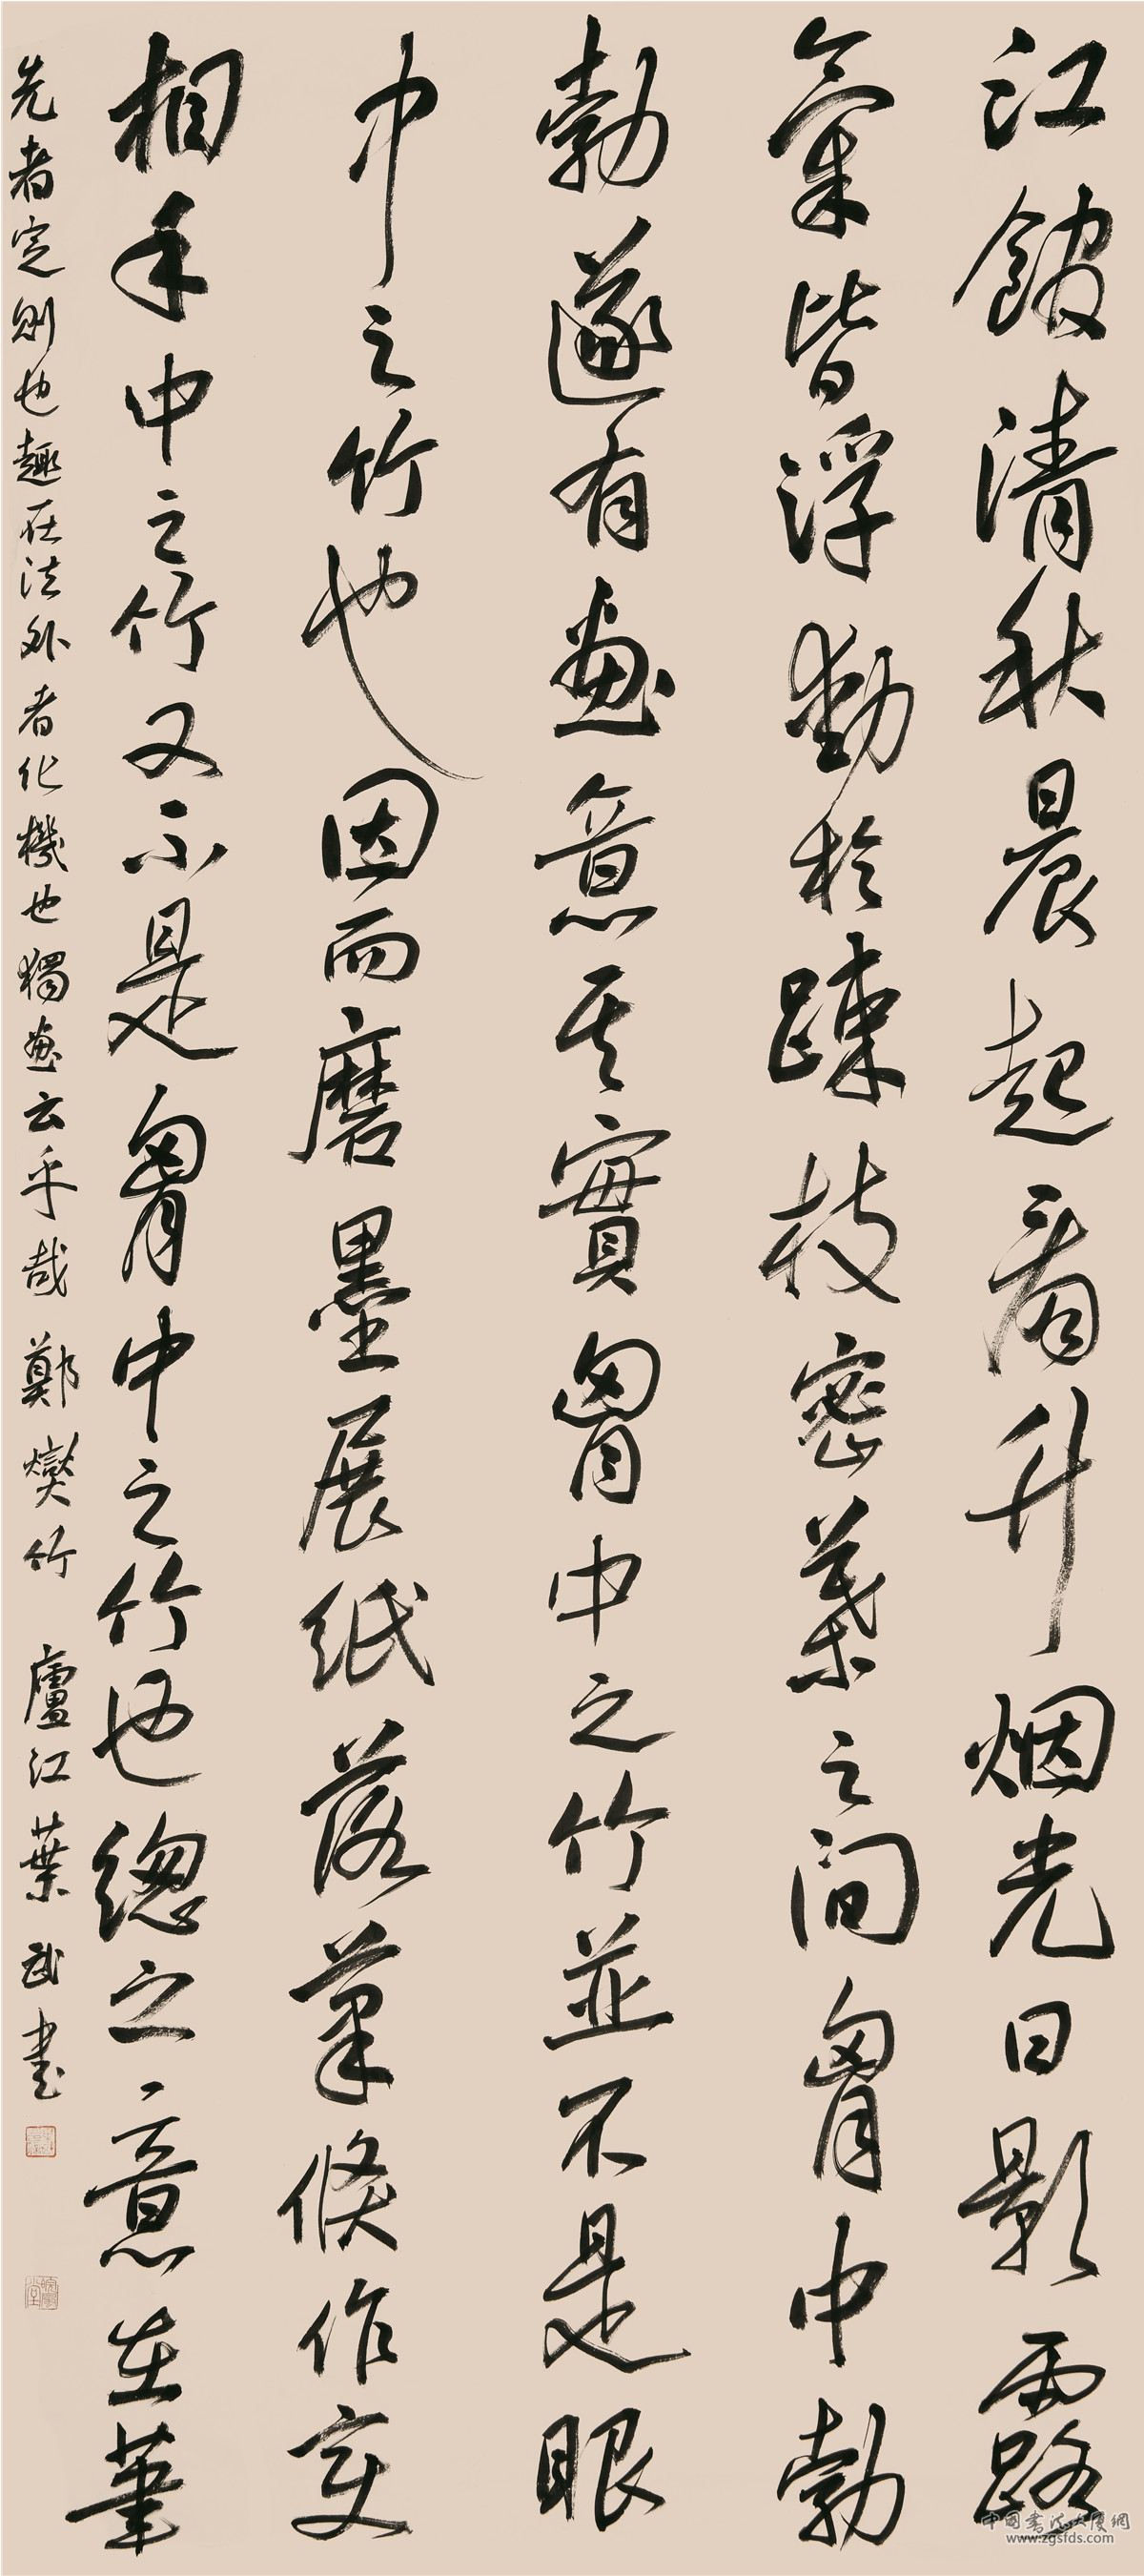 江館清秋晨起看升烟光日影露
氣皆浮動於疎枝密葉之間胷中勃
勃遂有畫意其實胷中之竹並不是眼
中之竹也因而磨墨展紙落筆倏作变
相手中之竹又不是胷中之竹也總之意在筆
先者定則也趣在法外者化機也獨畫云乎哉 鄭燮竹 廬江葉武書
中国书法大厦網
www.zgsfds.com